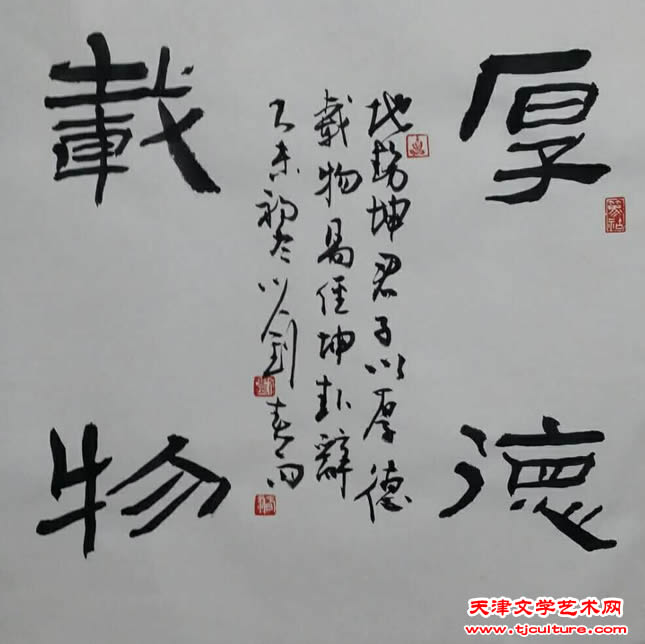 厚德
載物
地勢坤君子以厚德
載物易經坤卦辭
乙未初冬
天津文学艺术网
www.tjculture.com